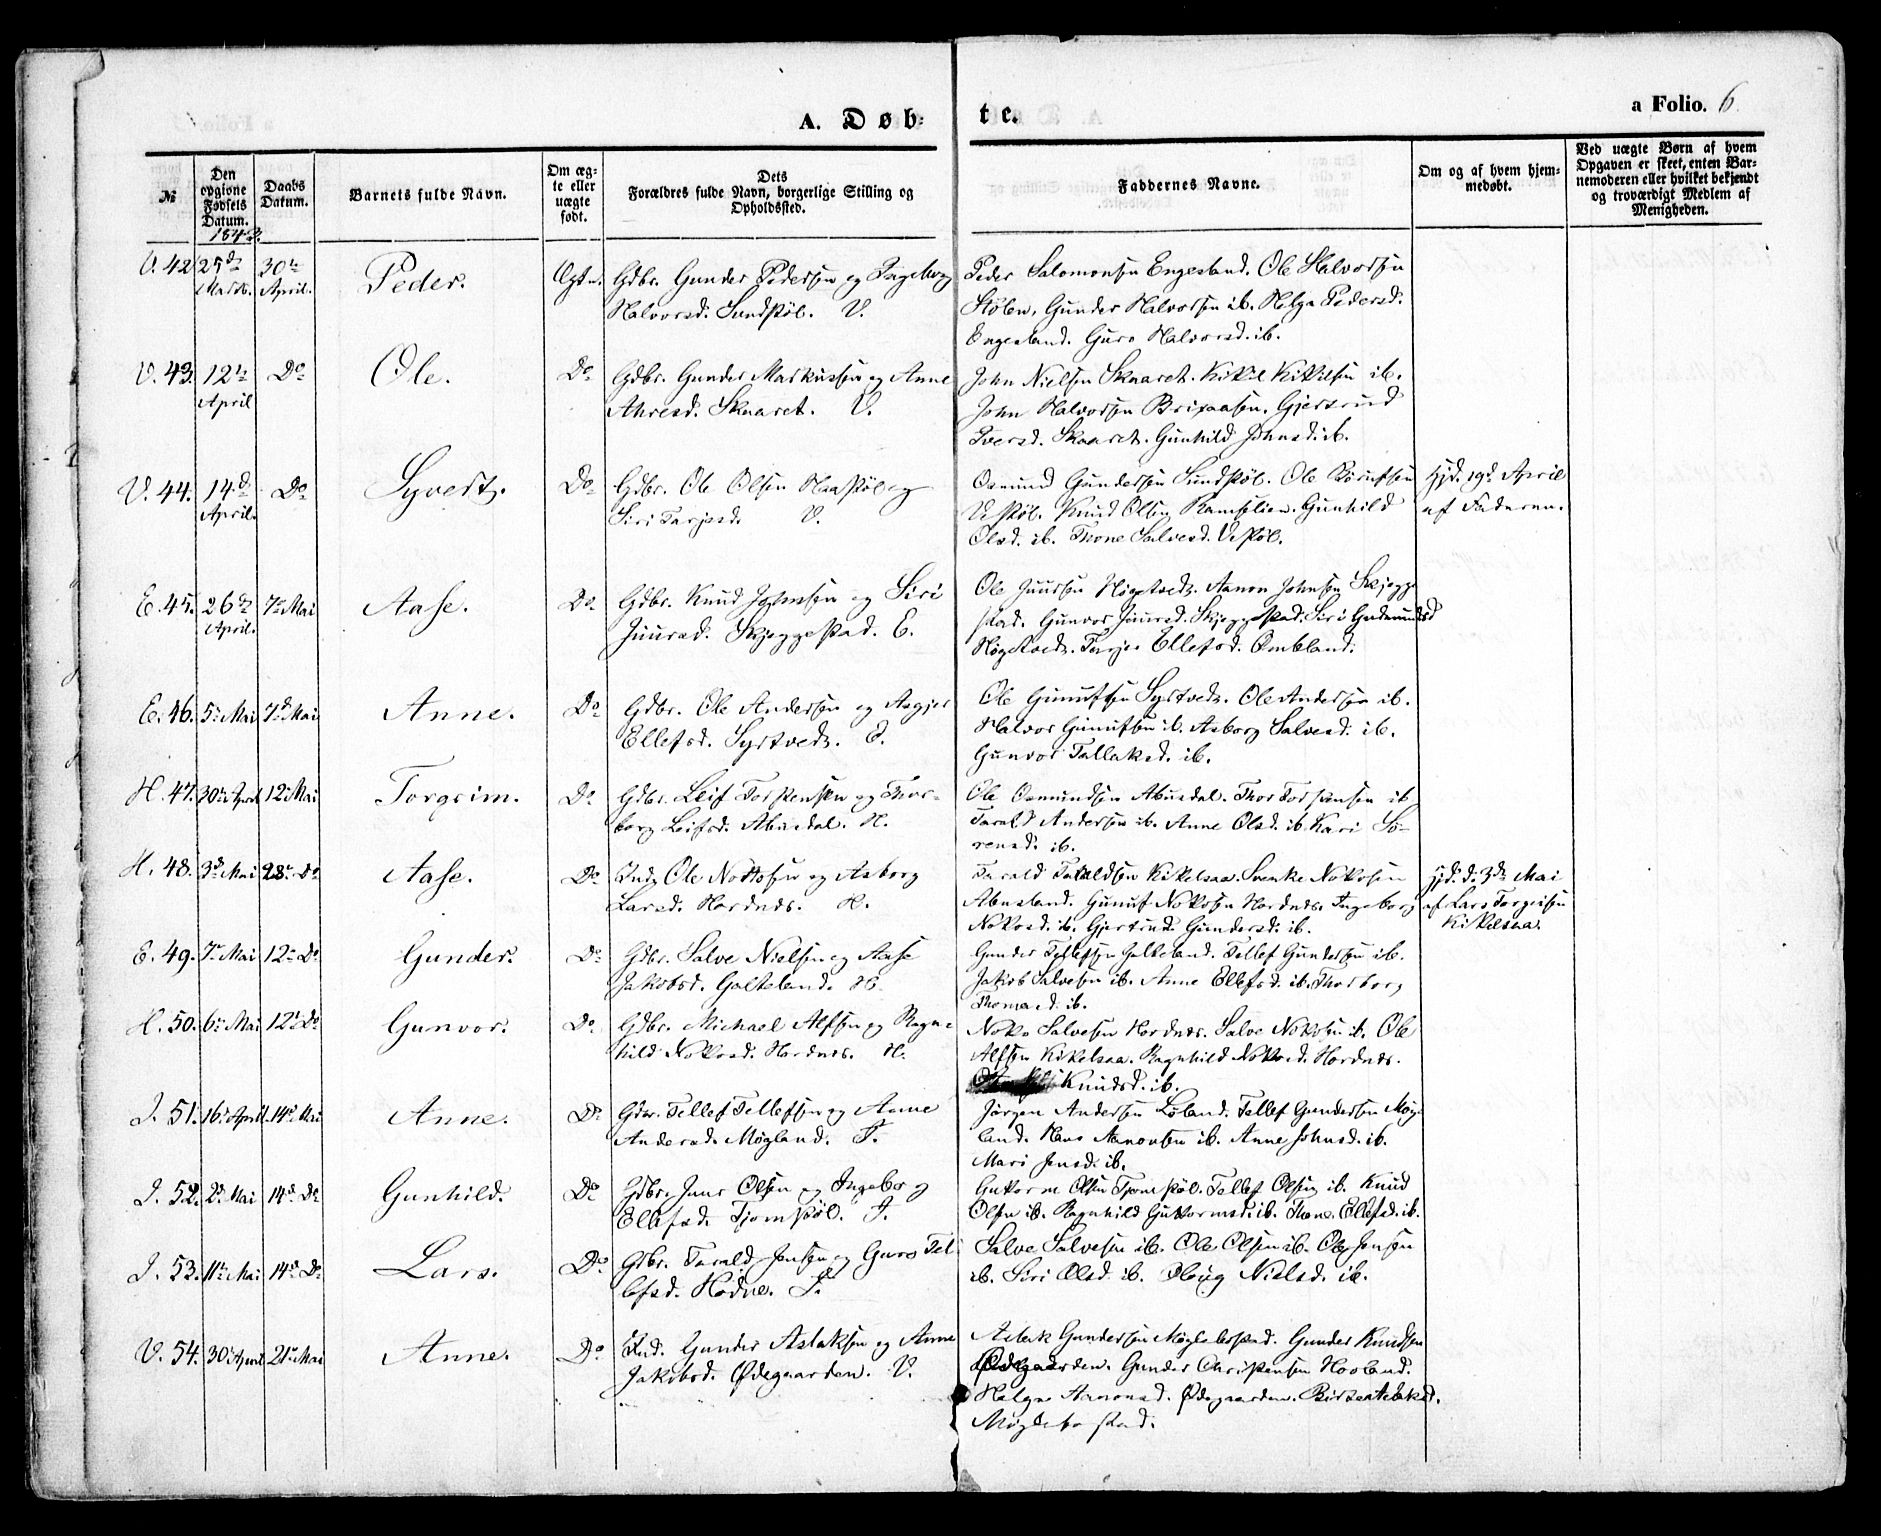 A. Døb-
te.
a Folio. 6.
№
Den
opgivne
Fødsels
Datum.
1843.
Daabs
Datum.
Barnets fulde Navn.
Om æg-
te eller
uægte
født.
Dets
Forældres fulde Navn, borgerlige Stilling og
Opholdssted.
Faddernes Navne.
Om og af hvem hjem-
medøbt.
Ved uægte Børn af hvem
Opgaven er skeet, enten Bar-
nemoderen eller hvilket bekjendt
og troværdigt Medlem af
Menigheden.
V. 42 25d Marts. 30te April. Peder. Ægte. Gdbr. Gunder Pedersen og Ingeborg
Halvorsd. Sundsköl. V.
Peder Salomonsen Engesland. Ole Halvorsen
Stölen, Gunder Halvorsen ib. Helga Pedersd.
Engesland. Guro Halvorsd. ib.
V. 43. 12te April Do Ole. Do Gdbr. Gunder Markussen og Anne
Skaaret. V.
John Nielsen Skaaret.
John Halvorsen Gjertrud
Iversd. Skaaret. Gunhild Johnsd. ib.
V. 44. 14d April. Do Syvert. Do Gdbr. Ole Olsen og
Siri Tarjesd. V.
Osmund Gundersen Sundsköl. Ole
Knud Olsen Gunhild
Olsd. ib. Thone Salvesd.
hjd. 19d April
af Faderen.
E. 45. 26de April. 7de Mai Aase. Do Gdbr. Knud Johnsen og Siri
Juursd. Skjeggestad. E.
Ole Juursen Högetvedt. Aanon Johnsen Skjegge
stad. Gunvor Juursd. Skjeggestad. Siri Gudmundsd
Högetvedt. Tarjer Ellefsd. Ombland.
E. 46. 5te Mai 7de Mai Anne. Do Gdbr. Ole Andersen og Asgjer
Ellefsd. Syrtvedt. E.
Ole Syrtvedt. Ole Andersen ib.
Halvor ib. Asborg Salvesd. ib.
Gunvor Tallaksd. ib.
H. 47. 30te April 12te Mai Torgrim. Do Gdbr. Leif Torstensen og Thor-
borg Leifsd. Abusdal. H.
Ole Osmundsen Abusdal. Thor Torstensen ib
Tarald Andersen ib. Anne Olsd. ib. Kari Sö-
rensd. ib.
H. 48. 3de Mai 28de Do Aase. Do Ind. Ole Nottosen og Asborg
Larsd. Hordnes. H.
Tarald Taraldsen Kikelsaa. Nottosen
Abusland. Nottosen Hordnes. Ingeborg
Nottosd. ib. Gjertrud Gundersd. ib.
hjd. d. 3de Mai
af Lars Torgeisen
Kikelsaa.
E. 49. 7de Mai 12te Do Gunder. Do Gdbr. Salve Nielsen og Aase
Jakobsd. Galteland. H
Gunder Tellefsen Galteland. Tellef Gundersen ib.
Jakob Salvesen ib. Anne Ellefsd. ib. Thorborg
Thomesd. ib.
H. 50. 6te Mai 12te Do Gunvor. Do Gdbr. Michael Alfsen og Ragn-
hild Nottosd. Hordnes. H.
Notto Salvesen Hordnes. Salve Nottosen ib. Ole
Alfsen Kikelsaa. Ragnhild Nottosd. Hordnes.
Knudsd. ib.
I. 51. 16de April 14de Mai Anne. Do Gdbr. Tellef Tellefsen og Anne
Andersd. Mögland. I.
Jörgen Andersen Löland. Tellef Gundersen Mög-
land. Hans Aanonsen ib. Anne Johnsd. ib.
Mari Jensd. ib.
I. 52. 2de Mai 14de Do Gunhild. Do Gdbr. Juur Olsen og Ingeborg
Ellefsd. Tjomsköl. I.
Guttorm Olsen Tjomsköl. Tellef Olsen ib. Knud
Olsen ib. Ragnhild Guttormsd. ib. Thone Ellefsd. ib.
I. 53. 11te Mai 14de Do Lars. Do Gdbr. Tarald Jensen og Guro Tel-
lefsd. Hodne. I.
Salve Salvesen ib. Ole Olsen ib. Ole Jensen
ib. Siri Olsd. ib. Oloug Nielsd. ib.
V. 54. 30te April 21de Mai Anne. Do Ind. Gunder Aslaksen og Anne
Jakobsd. Ødegaarden. V.
Aslak Gundersen Möglebostad. Gunder Knudsen
Ødegaarden. Gunder Christensen Hovland.
Helga Aanonsd. Ødegaarden. Aslaksd.
Möglebostad.